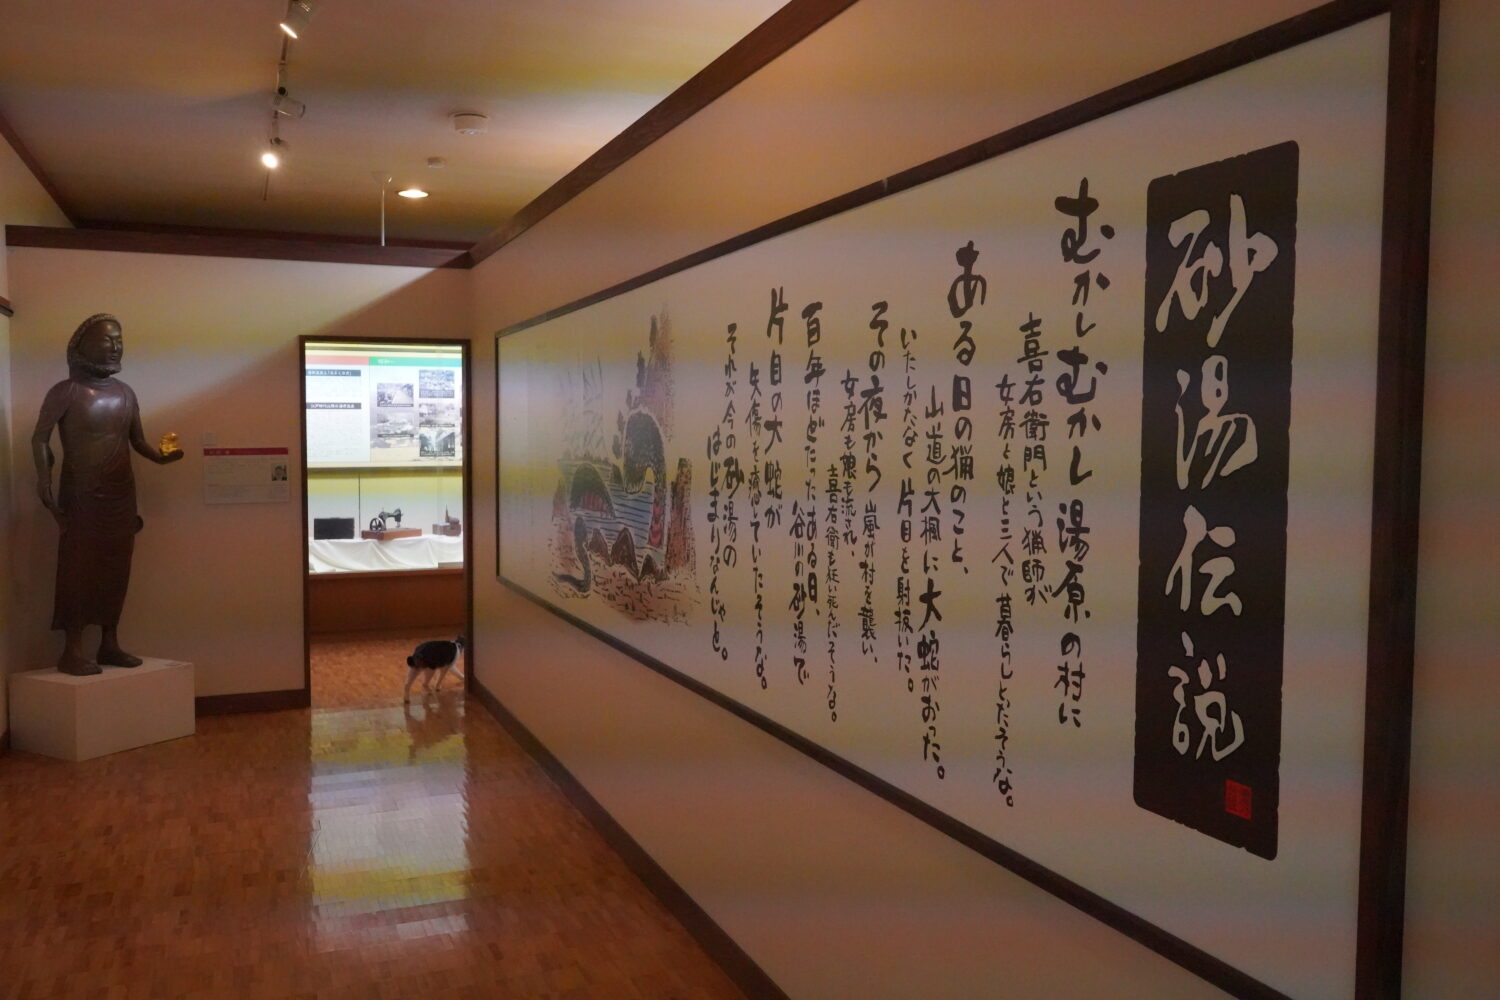 砂湯伝説
むかしむかし湯原の村に
喜右衛門という猟師が
女房と娘と三人で暮らしとったそうな。
ある日の猟のこと、
山道の大楓に大蛇がおった。
いたしかたなく片目を射抜いた。
その夜から嵐が村を襲い、
女房も娘も流され、
喜右衛も狂い死んだそうな。
百年ほどたったある日、
谷川の砂湯で
片目の大蛇が
矢傷を癒していたそうな。
それが今の砂湯の
はじまりなんじゃと。